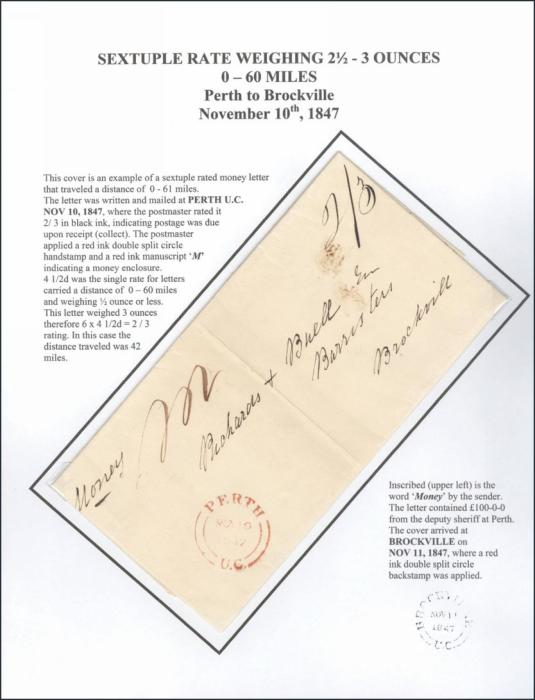 SEXTUPLE RATE WEIGHING 2½ - 3 OUNCES
0 – 60 MILES
Perth to Brockville
November 10th, 1847
This cover is an example of a sextuple rated money letter
that traveled a distance of 0 - 61 miles.
The letter was written and mailed at PERTH U.C.
NOV 10, 1847, where the postmaster rated it
2/ 3 in black ink, indicating postage was due
upon receipt (collect). The postmaster
applied a red ink double split circle
handstamp and a red ink manuscript ‘M’
indicating a money enclosure.
4 1/2d was the single rate for letters
carried a distance of 0 – 60 miles
and weighing ½ ounce or less.
This letter weighed 3 ounces
therefore 6 x 4 1/2d = 2 / 3
rating. In this case the
distance traveled was 42
miles.
2/3
Money
M
Richards + Buell
Barristers
Brockville
PERTH
NOV 10
1847
U.C.
Inscribed (upper left) is the
word ‘Money’ by the sender.
The letter contained £100-0-0
from the deputy sheriff at Perth.
The cover arrived at
BROCKVILLE on
NOV 11, 1847, where a red
ink double split circle
backstamp was applied.
BROCKVILLE
NOV 11
1847
U.C.